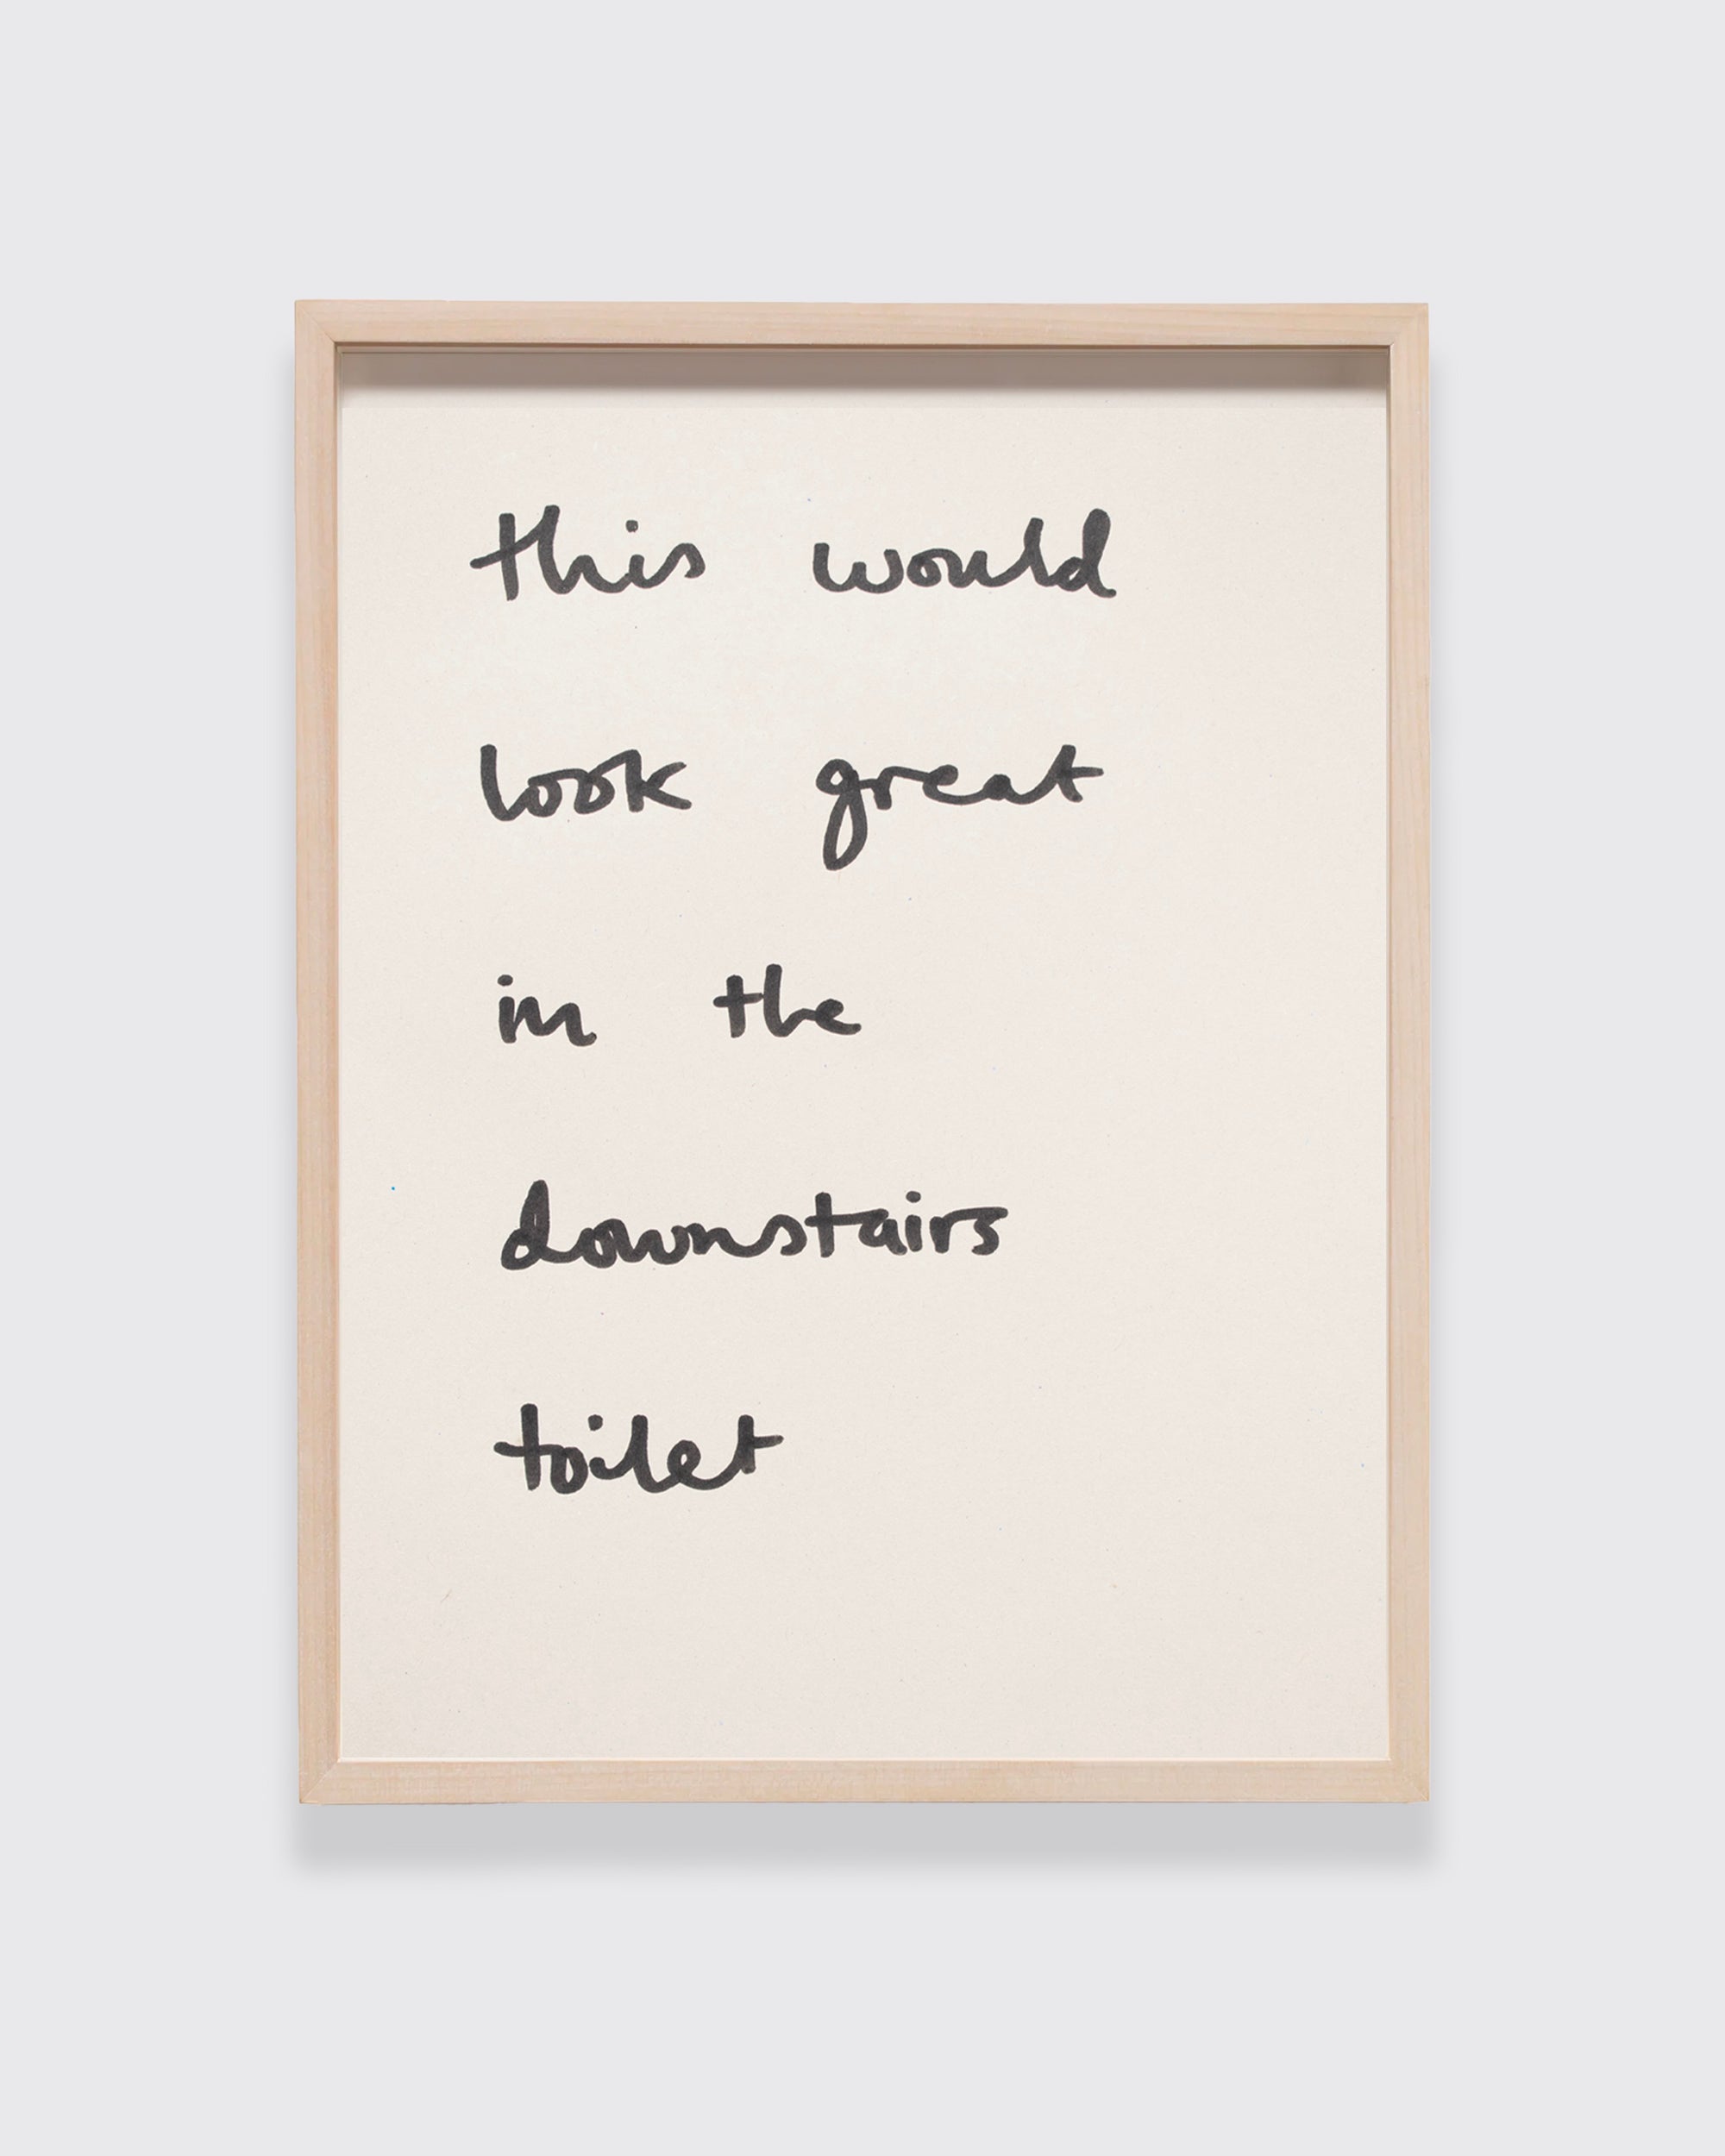 this would
look great
in the
downstairs
toilet